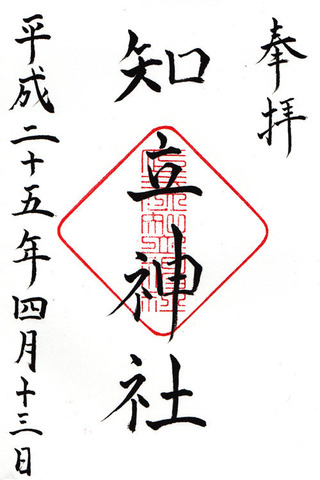 奉拝
知立神社
平成二十五年四月十三日